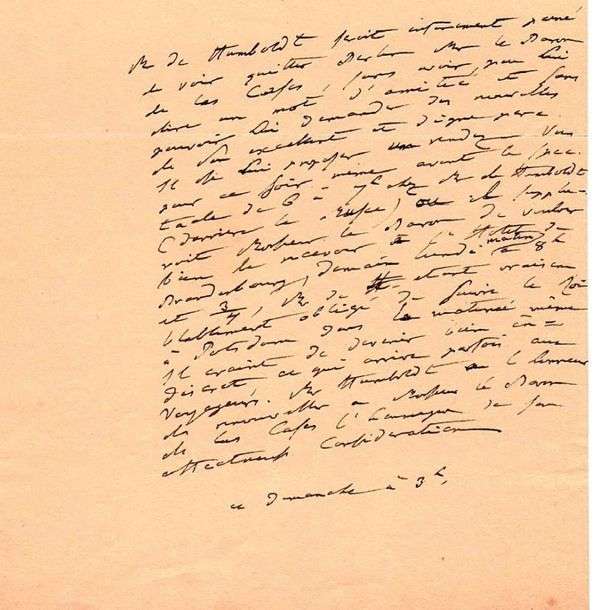 Mr de Humboldt seroit vivement peiné
de voir quitter Berlin Mr le Baron
de las Casas, sans avoir pu lui
dire un mot d'amitié et sans
pouvoir lui demander des nouvelles
de son excellent et digne pere.
Il ose lui proposer un rendez vous
pour ce soir même avant le spec
tacle de 6 à 7h chez Mr de Humboldt
(derriere le Musée) ou il supplie
roit Monsieur le Baron de vouloir
bien le recevoir à l'Hotel de
Brandebourg, demain lundi matin à 8h
et 3/4, Mr de H etant vraisem
blablement obligé de suivre le Roi
à Potsdam dans la matinée même
Il craint de devenir bien in=
discret, ce qui arrive parfois aux
voyageurs. Mr Humboldt a l'honneur
de renouveller a Monsieur le Baron
de las Casas l'hommage de sa
affectueuse Consideration
ce Dimanche à 3h.